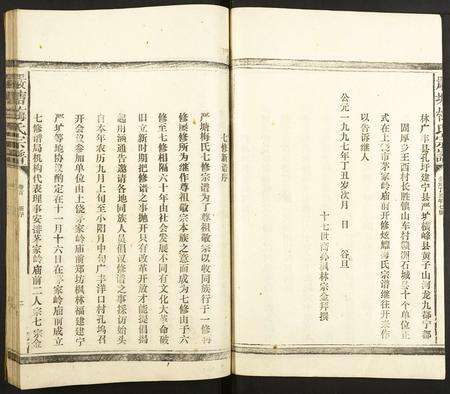 嚴塘梅氏宗譜
林广丰县孔圩建宁县严圹横峰县黄子山河龙九都宁都
固厚乡王西村长胜镇山车村赣洲石城等十个单位正
式在上饶市茅家岭庙前开修炫梅氏宗谱继往开来作
以告诉继人
公元一九九七年丁丑岁次月 日 谷旦
十七世裔孙枫林宗金拜撰
七修新谱序
严塘梅氏七修宗谱为了尊祖敬宗以收同族行于一修再
修屡修所为继作尊祖敬宗本族之意而成为七修由于六
修至七修相隔六十年由社会发展不同有文化大革命破
旧立新时期把修谱之事抛开只有改革开放才能提倡
起用涵通告邀请各地同族人员倡议修谱之事採访始头
自本年农历九月上旬至小阳月中旬广丰洋口村孔坞召
开会议参加单位由上饶茅家岭庙前郑坊枫林福建建宁
严圹等地协议酌定在十一月十六日在茅家岭庙前成立
七修谱局机构代表理事安排茅家岭庙前二人宗七宗金
嚴塘梅氏宗譜